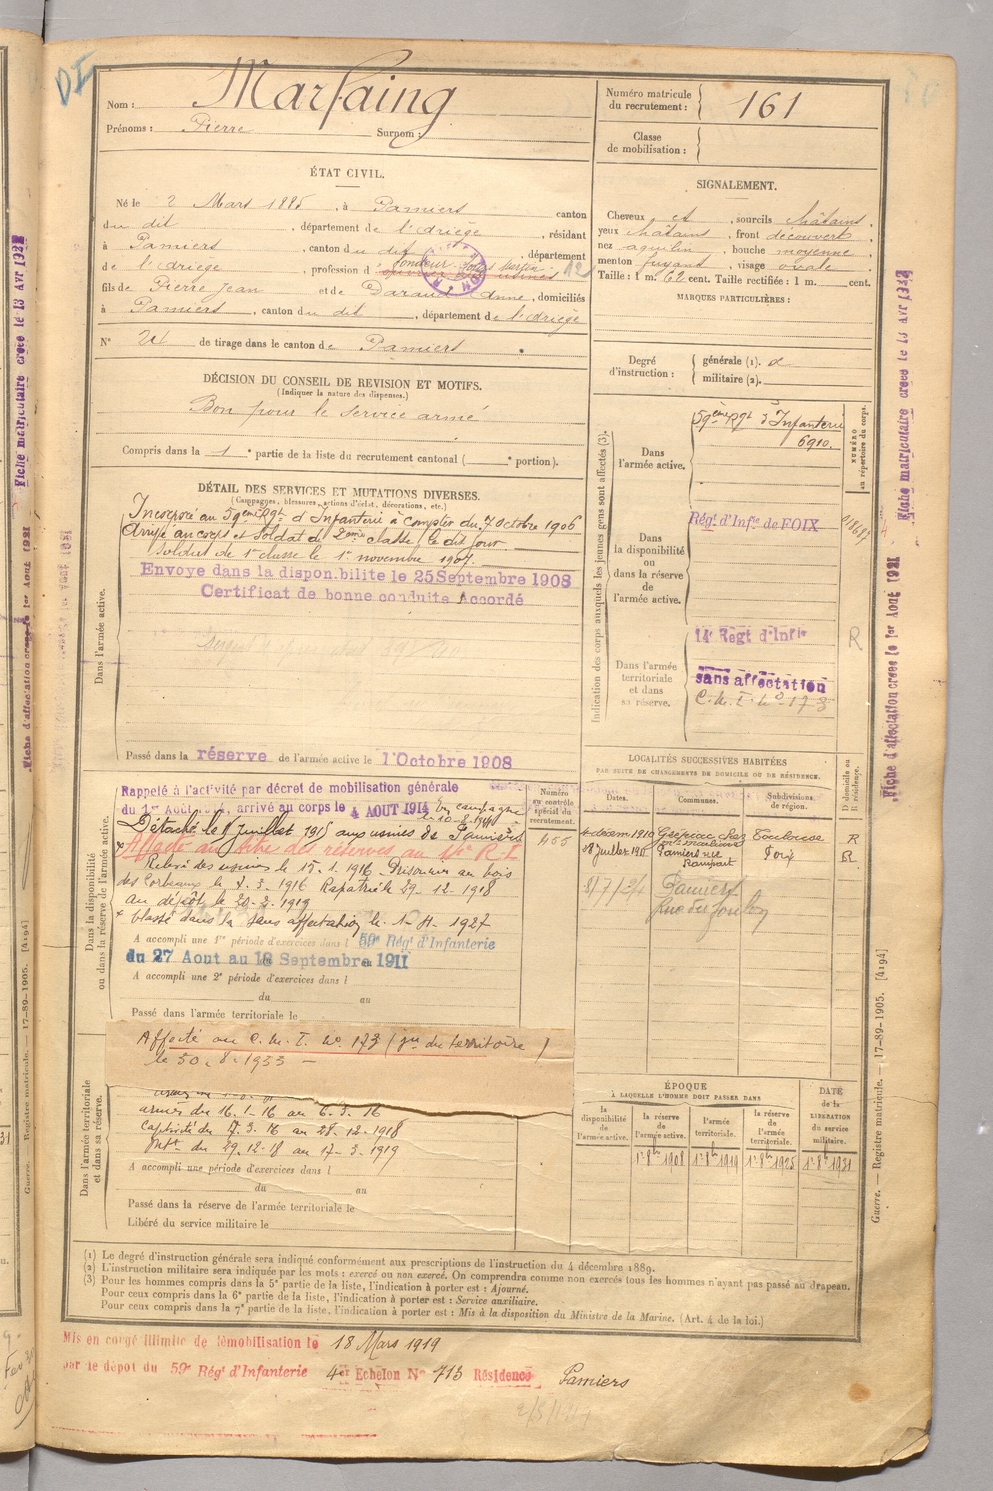 Nom : Marfaing
Prénoms : Pierre Surnom :
Numéro matricule
du recrutement : 161
Classe
de mobilisation :
ÉTAT CIVIL.
Né le 2 Mars 1885, à Pamiers canton
du dit, département de l'Ariège, résidant
à Pamiers, canton du dit, département
de l'Ariège, profession de
fils de Pierre Jean et de Daraud Anne, domiciliés
à Pamiers, canton du dit, département de l'Ariège
N° de tirage dans le canton de Pamiers
SIGNALEMENT.
Cheveux et, sourcils châtains,
yeux châtains, front découvert,
nez aquilin, bouche moyenne,
menton fuyant, visage ovale
Taille : 1 m. 62 cent. Taille rectifiée : 1 m. cent.
MARQUES PARTICULIÈRES :
Degré
d'instruction :
générale (1). 2
militaire (2).
DÉCISION DU CONSEIL DE REVISION ET MOTIFS.
(Indiquer la nature des dispenses.)
Bon pour le service armé
Compris dans la 1e partie de la liste du recrutement cantonal ( e portion).
DÉTAIL DES SERVICES ET MUTATIONS DIVERSES.
(Campagnes, blessures, actions d'éclat, décorations, etc.)
Dans l'armée active.
Incorporé au 59ème Rgt d'Infanterie à compter du 7 octobre 1906
Arrivé au corps et soldat de 2ème classe, le dit jour.
Soldat de 1re classe le 1er novembre 1907.
Envoye dans la disponibilite le 25 Septembre 1908
Certificat de bonne conduite Accordé
Passé dans la réserve de l'armée active le 1 Octobre 1908
Indication des corps auxquels les jeunes gens sont affectés (3).
NUMÉRO
au répertoire du corps.
Dans
l'armée active.
59ème Rgt d'Infanterie
6910
Dans
la disponibilité
ou
dans la réserve
de
l'armée active.
Régt d'Infie de FOIX
Dans l'armée
territoriale
et dans
sa réserve.
14e Regt d'Infie
R
sans affectation
C.M.I. N° 173
Dans la disponibilité
ou dans la réserve de l'armée active.
Rappelé à l'activité par décret de mobilisation générale
du 1er Août 1914, arrivé au corps le 4 AOUT 1914 En campagne
Détaché le 8 juillet 1915 aux usines de Pamiers
Affecté au titre des réserves au 14e R.I.
Relevé des usines le 15.1.1916. Prisonnier au bois
des Corbeaux le 7.3.1916 Rapatrié le 29.12.1918
au dépôt le 20.2.1919
Classé dans la sans affectation le 1.4.1927
A accompli une 1re période d'exercices dans l 59e Régt d'Infanterie
du 27 Aout au 18 Septembre 1911
A accompli une 2e période d'exercices dans l
du au
Passé dans l'armée territoriale le
Numéro
au contrôle
spécial du
recrutement.
455
LOCALITÉS SUCCESSIVES HABITÉES
PAR SUITE DE CHANGEMENTS DE DOMICILE OU DE RÉSIDENCE.
Dates. Communes. Subdivisions
de région. D domicile ou
R résidence.
4 décem 1910 Toulouse R
18 juillet 1911 Pamiers rue
Rempart Foix R
8/7/24 Pamiers
Rue du
Affecté au C.M.I. N° 173 (int du territoire)
le 30.8.1933
Dans l'armée territoriale
et dans sa réserve.
armée du 16.1.16 au 6.3.16
Captivité du 7.3.16 au 28.12.1918
Intr du 29.12.18 au 17.3.1919
A accompli une période d'exercices dans l
du au
Passé dans la réserve de l'armée territoriale le
Libéré du service militaire le
ÉPOQUE
À LAQUELLE L'HOMME DOIT PASSER DANS
la
disponibilité
de
l'armée active.
la réserve
de
l'armée active.
l'armée
territoriale.
la réserve
de
l'armée
territoriale.
DATE
de la
LIBÉRATION
du service
militaire.
1r 8bre 1908 1r 8bre 1919 1r 8bre 1925 1r 8bre 1931
(1) Le degré d'instruction générale sera indiqué conformément aux prescriptions de l'instruction du 4 décembre 1889.
(2) L'instruction militaire sera indiquée par les mots : exercé ou non exercé. On comprendra comme non exercés tous les hommes n'ayant pas passé au drapeau.
(3) Pour les hommes compris dans la 5e partie de la liste, l'indication à porter est : Ajourné.
Pour ceux compris dans la 6e partie de la liste, l'indication à porter est : Service auxiliaire.
Pour ceux compris dans la 7e partie de la liste, l'indication à porter est : Mis à la disposition du Ministre de la Marine. (Art. 4 de la loi.)
Mis en congé illimité de démobilisation le 18 Mars 1919
par le dépot du 59e Régt d'Infanterie 4er Echelon N° 713 Résidence Pamiers
Guerre. — Registre matricule. — 17-89-1905. [4194]
Fiche matriculaire créée le 13 Avr 192
Fiche d'affectation créée le 1er Aout 1921
Guerre. — Registre matricule. — 17-89-1905. [4194]
Fiche matriculaire créée le 13 Avr 192
Fiche d'affectation créée le 1er Aout 1921